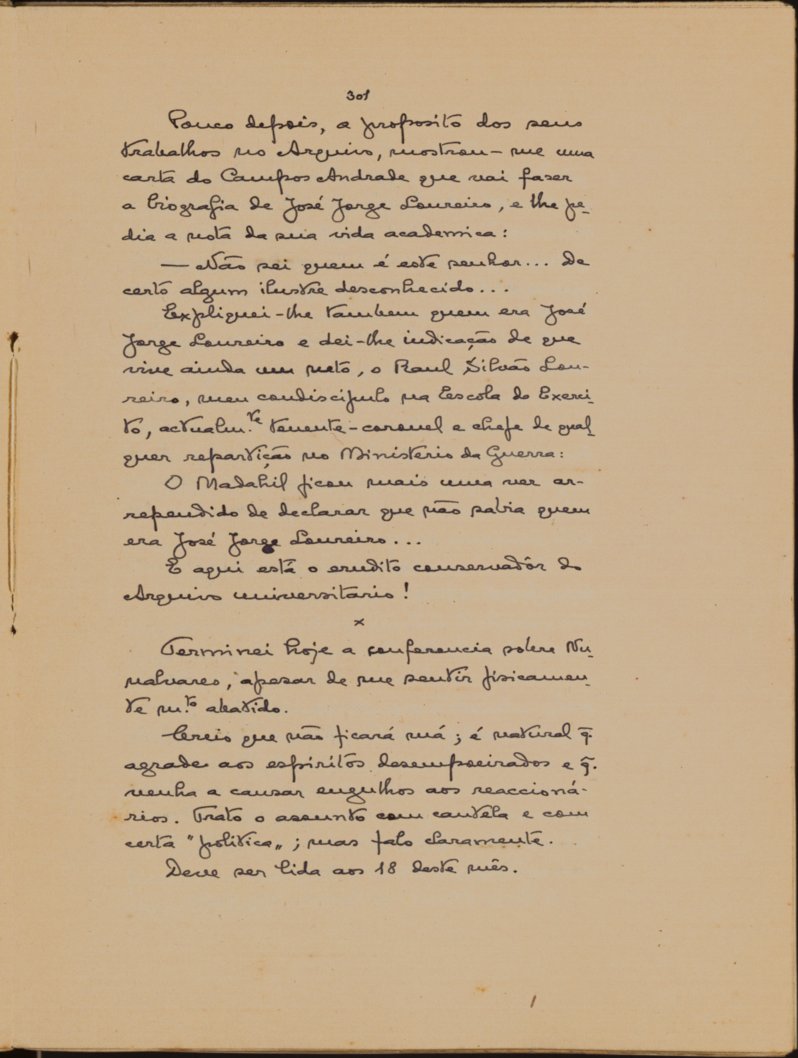 301
Pouco depois, a proposito dos seus
trabalhos no Arquivo, mostrou-me uma
carta do Campos Andrade que vai faser
a biografia de José Jorge Loureiro, e lhe pe-
dia a nota da sua vida academica:
— Não sei quem é este senhor... De
certo algum ilustre desconhecido...
Expliquei-lhe tambem quem era José
Jorge Loureiro e dei-lhe indicação de que
vive ainda um neto, o Raul Silvão Lou-
reiro, meu condiscipulo na Escola do Exerci-
to, actualm.te tenente-coronel e chefe de qual-
quer repartição no Ministerio da Guerra:
O Madahil ficou mais uma vez ar-
rependido de declarar que não sabia quem
era José Jorge Loureiro...
E aqui está o erudito conservadôr do
Arquivo universitario!
×
Terminei hoje a conferencia sobre Nu-
nalvares, apesar de me sentir fisicamen-
te m.to abatido.
Creio que não ficará má; é natural q̃.
agrade aos espiritos desempoeirados e q̃.
venha a causar engulhos aos reaccioná-
rios. Trato o assunto com cautela e com
certa "politica„; mas falo claramente.
Deve ser lida aos 18 deste mês.
1